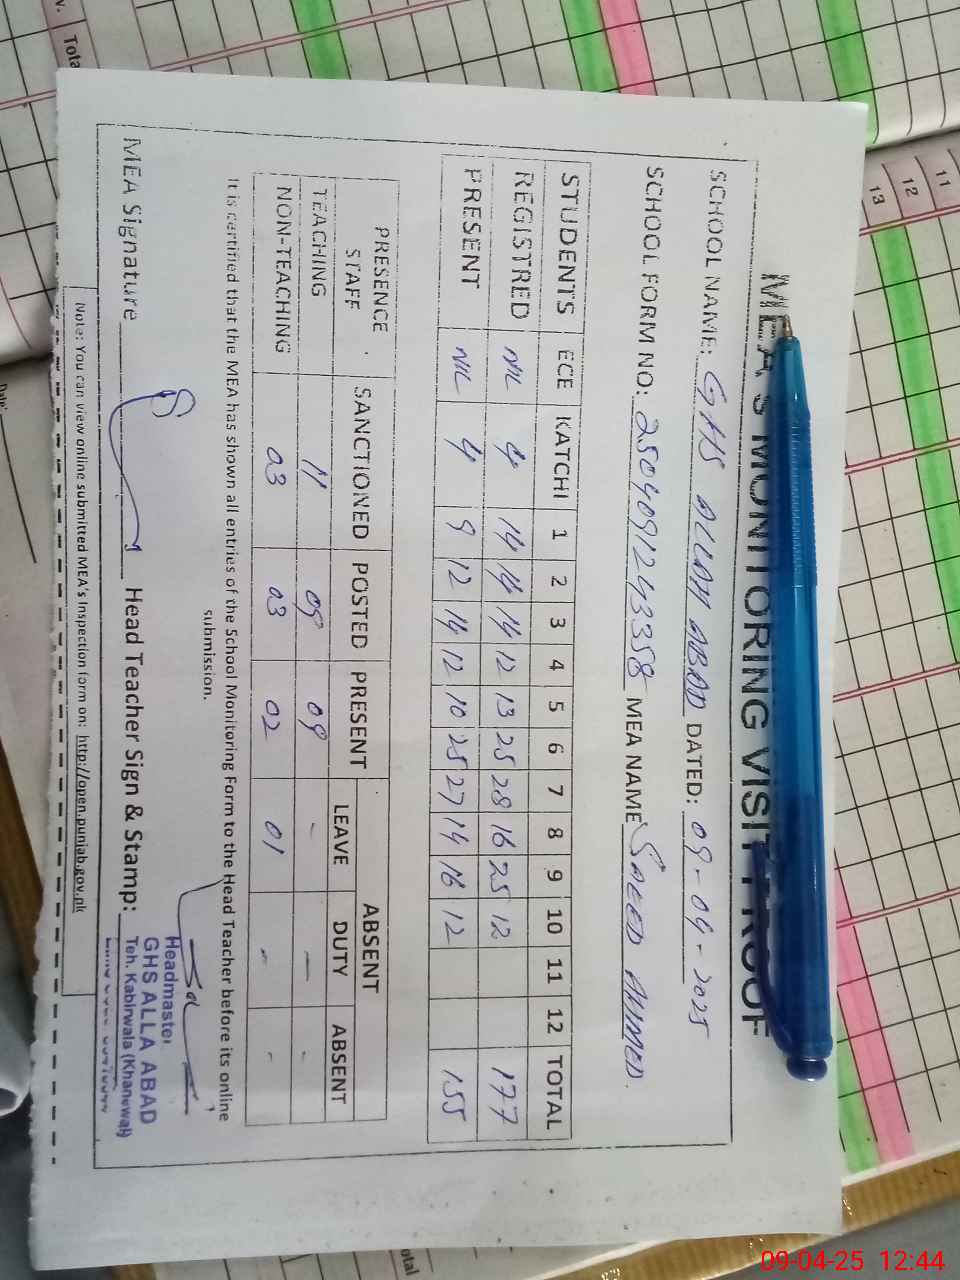 MEA'S MONITORING VISIT PROOF
SCHOOL NAME: GHS ALLAH ABAD DATED: 09-04-2025
SCHOOL FORM NO: 2504091243358 MEA NAME SAEED AHMED.
STUDENTS ECE KATCHI 1 2 3 4 5 6 7 8 9 10 11 12 TOTAL
REGISTRED NIL 4 14 14 14 12 13 25 28 16 25 12 177
PRESENT NIL 4 9 12 14 12 10 25 27 14 16 12 155
PRESENCE STAFF SANCTIONED POSTED PRESENT ABSENT
LEAVE DUTY ABSENT
TEACHING 11 09 09 - - -
NON-TEACHING 03 03 02 01 - -
It is certified that the MEA has shown all entries of the School Monitoring Form to the Head Teacher before its online
submission.
MEA Signature Head Teacher Sign & Stamp:
Headmaster
GHS ALLA ABAD
Teh. Kabirwala (Khanewal)
Note: You can view online submitted MEA's Inspection form on: http://open.punjab.gov.pk
Total
11
12
13
Date:
otal
09-04-25 12:44